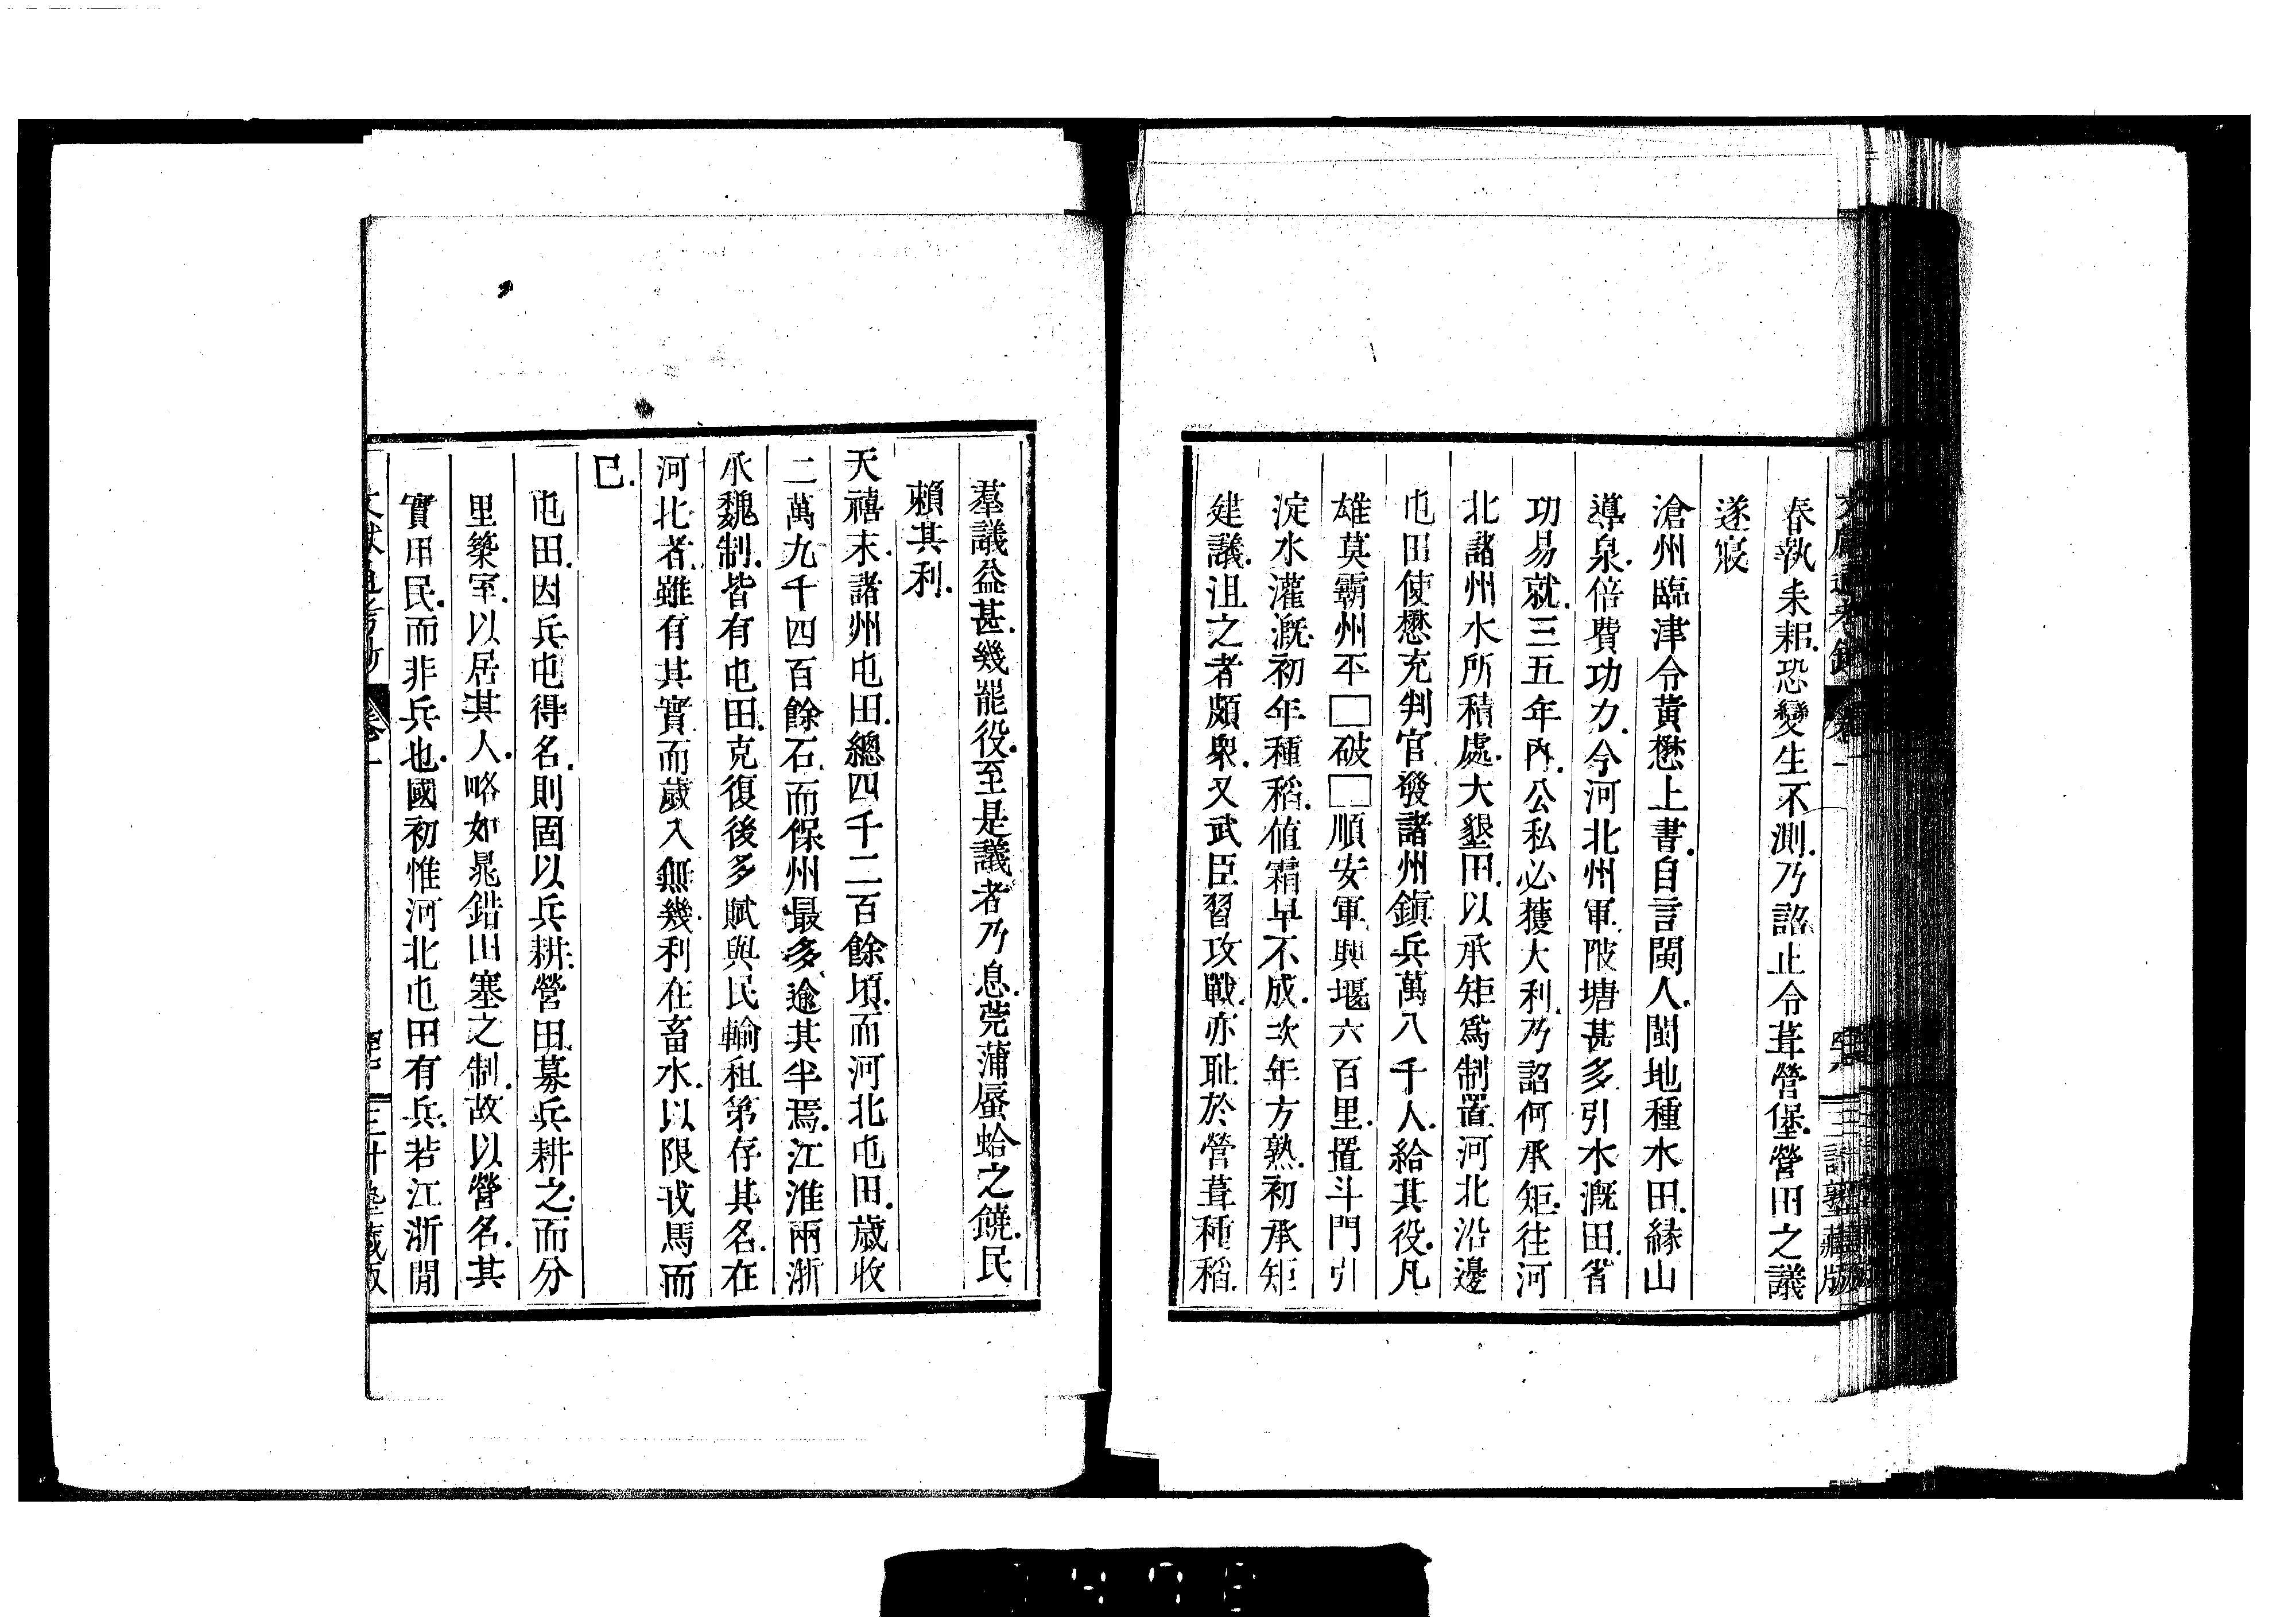 春執耒耜恐變生不測乃詔止令葺營堡營田之議
遂寢
滄州臨津令黃懋上書自言閩人閩地種水田緣山
導泉倍費功力今河北州軍陂塘甚多引水漑田省
功易就三五年內公私必獲大利乃詔何承矩往河
北諸州水所積處大墾田以承矩爲制置河北沿邊
屯田使懋充判官發諸州鎭兵萬八千人給其役凡
雄莫霸州平□破□順安軍興堰六百里置斗門引
淀水灌漑初年種稻値霜早不成次年方熟初承矩
建議沮之者頗衆又武臣習攻戰亦恥於營葺種稻
羣議益甚幾罷役至是議者乃息莞蒲蜃蛤之饒民
賴其利
天禧末諸州屯田總四千二百餘頃而河北屯田歲收
二萬九千四百餘石而保州最多逾其半焉江淮兩浙
承魏制皆有屯田克復後多賦與民輸租第存其名在
河北者雖有其實而歲入無幾利在畜水以限戎馬而
已
屯田因兵屯得名則固以兵耕營田募兵耕之而分
里築室以居其人略如晁錯田塞之制故以營名其
實用民而非兵也國初惟河北屯田有兵若江浙閒